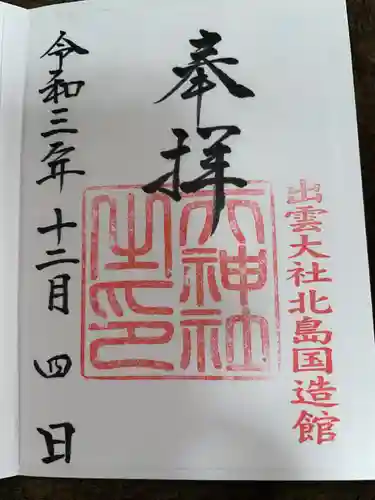 出雲大社北島国造館
奉拝
神社
之印
令和三年十二月四日